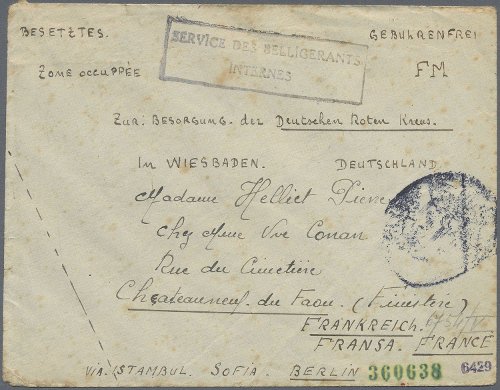 BESETZTES.
GEBUHRENFREI
SERVICE DES BELLIGERANTS
INTERNES
ZONE OCCUPPÉE
FM
ZUR: BESORGUNG. der Deutschen Roten Kreus.
In WIESBADEN. DEUTSCHLAND
Madame Helliet Pierre
chez Mme Vve Conan
Rue du Cimetière
Chateauneuf. du Faou. (Finistère)
FRANKREICH.
FRANSA. FRANCE
VIA. ISTAMBUL. SOFIA. BERLIN 360638 6429